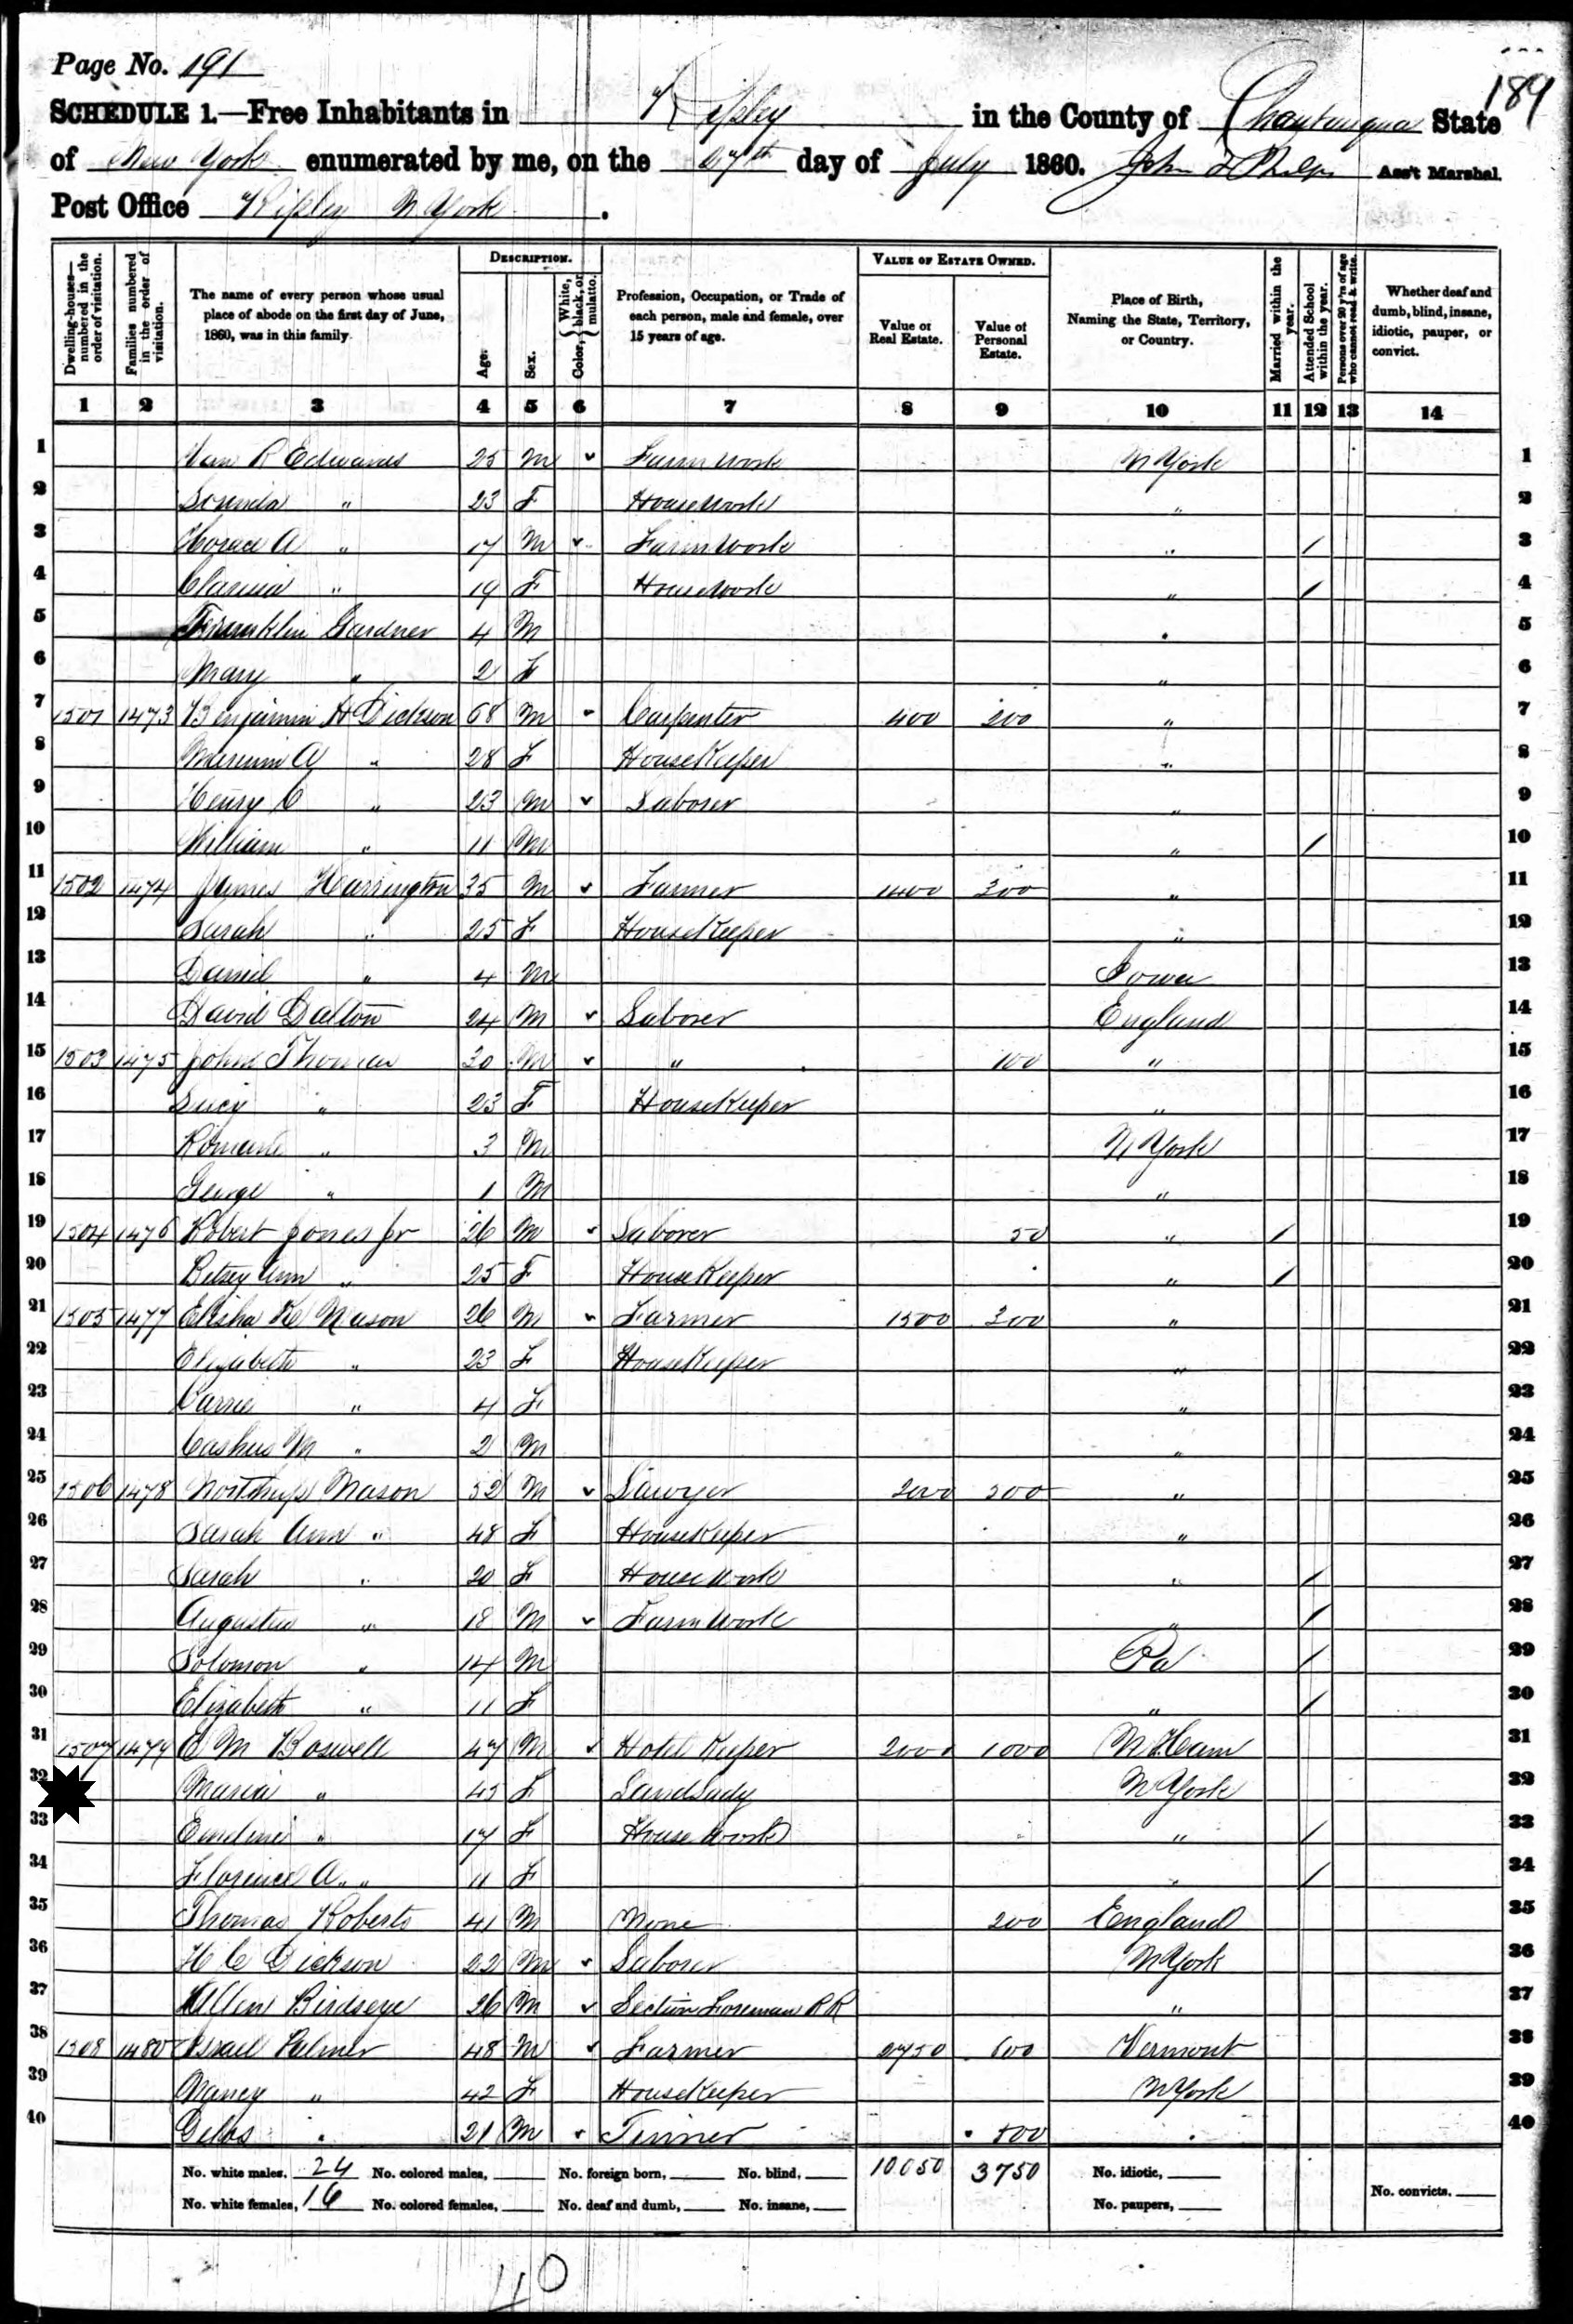 Page No. 191
189
SCHEDULE 1.—Free Inhabitants in Ripley in the County of Chautauqua State
of New York enumerated by me, on the 27th day of July 1860. John Phelps Ass't Marshal.
Post Office Ripley N York.
Dwelling-houses—numbered in the order of visitation.
Families numbered in the order of visitation.
The name of every person whose usual place of abode on the first day of June, 1860, was in this family.
DESCRIPTION.
Age.
Sex.
Color, { White, black, or mulatto.
Profession, Occupation, or Trade of each person, male and female, over 15 years of age.
VALUE OF ESTATE OWNED.
Value of Real Estate.
Value of Personal Estate.
Place of Birth, Naming the State, Territory, or Country.
Married within the year.
Attended School within the year.
Persons over 20 y'rs of age who cannot read & write.
Whether deaf and dumb, blind, insane, idiotic, pauper, or convict.
1 2 3 4 5 6 7 8 9 10 11 12 13 14
1 R Edwards 25 M Farm Work N York 1
2 " 23 F House Work " 2
3 Horace A " 17 M Farm Work " / 3
4 Clarissa " 19 F House Work " / 4
5 Franklin Gardner 4 M " 5
6 Mary " 2 F " 6
7 1501 1473 Benjamin H Dickson 68 M Carpenter 400 200 " 7
8 A " 28 F House Keeper " 8
9 Henry C " 23 M Laborer " 9
10 William " 11 M " / 10
11 1502 1474 James Harrington 35 M Farmer 1400 300 " 11
12 Sarah " 25 F House Keeper " 12
13 Daniel " 4 M Iowa 13
14 David Dalton 24 M Laborer England 14
15 1503 1475 John Thomas 30 M " 100 " 15
16 Lucy " 23 F House Keeper " 16
17 " 3 M N York 17
18 George " 1 M " 18
19 1504 1476 Robert Jones Jr 26 M Laborer 50 " / 19
20 Betsey Ann " 25 F House Keeper " / 20
21 1505 1477 Elisha K Mason 26 M Farmer 1500 300 " 21
22 Elizabeth " 23 F House Keeper " 22
23 Carrie " 4 F " 23
24 Cashus M " 2 M " 24
25 1506 1478 Northrup Mason 52 M Sawyer 2000 300 " 25
26 Sarah Ann " 48 F House Keeper " 26
27 Sarah " 20 F House Work " / 27
28 Augustus " 18 M Farm Work " / 28
29 Solomon " 14 M Pa / 29
30 Elizabeth " 11 F " / 30
31 1507 1479 E M Boswell 47 M Hotel Keeper 2000 1000 N Ham 31
32 Maria " 45 F Land Lady N York 32
33 Emeline " 17 F House Work " / 33
34 Florence A " 11 F " / 34
35 Thomas Roberts 41 M None 200 England 35
36 H C Dickson 22 M Laborer N York 36
37 Allen Birdseye 26 M Section Foreman R R " 37
38 1508 1480 Israel Palmer 48 M Farmer 2750 600 Vermont 38
39 Nancy " 42 F House Keeper N York 39
40 " 21 M Tinner 500 " 40
No. white males, 24 No. colored males, No. foreign born, No. blind, 10050 3750 No. idiotic,
No. white females, 16 No. colored females, No. deaf and dumb, No. insane, No. paupers, No. convicts.
40